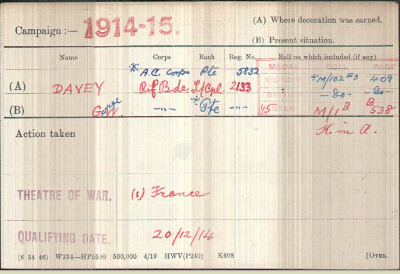 Campaign :— 1914-15. (A) Where decoration was earned.
(B) Present situation.
Name Corps Rank Reg. No. Roll on which included (if any)
* A.C. Corps Pte 5832 MEDAL ROLL PAGE
(A) DAVEY Rif Bde. L/Cpl 2133 TM/102 B3 409
(B) George -"- * Pte -"- 15 STAR M/1 B B 538
-Do- -Do-
Action taken
THEATRE OF WAR. (1) France
QUALIFYING DATE. 20/12/14
(6 34 46) W234—HP5590 500,000 4/19 HWV(P240) K608 [OVER.